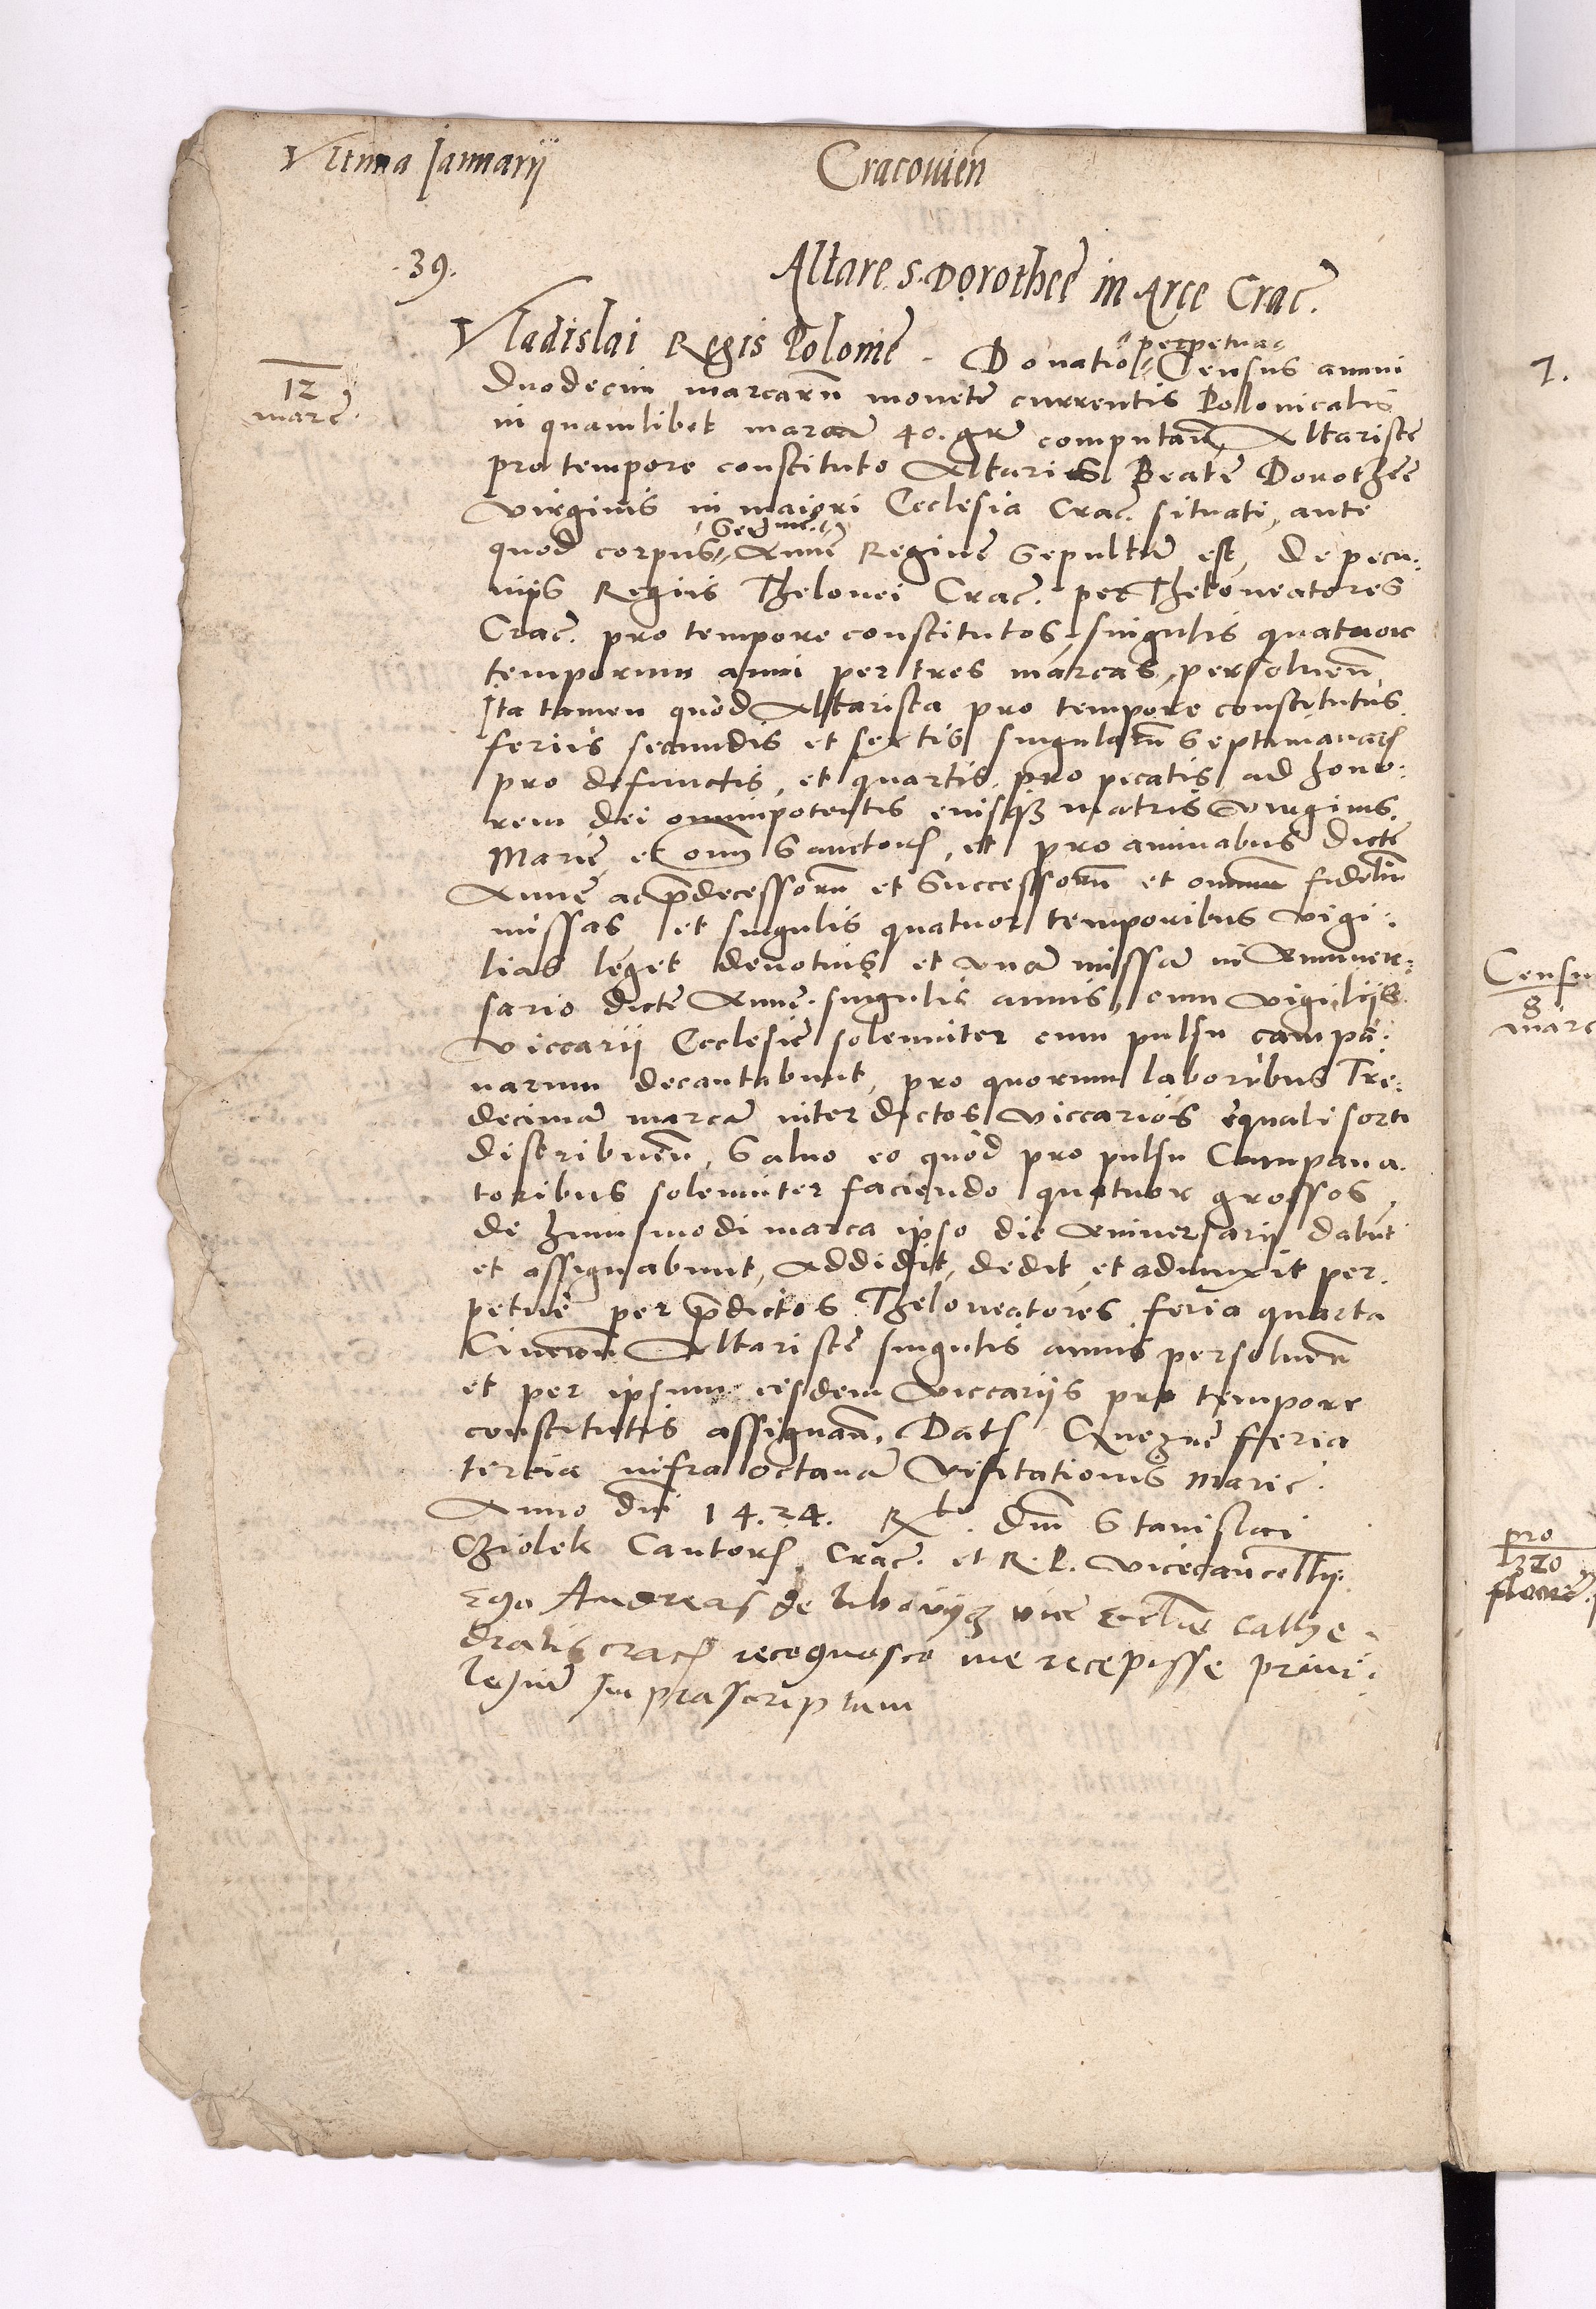 Vltima Januarij
Cracouien̄
.39.
Altare. S. Dorotheę in Arce Crac̄.
Vladislai Regis Polonię - Donatio perpetua Census annui
12
marc̄.
duodecim marcarū monetę currentis Polonicalis
in quamlibet marcā 40. gr̄ computan̄, Altaristę
pro tempore constituto Altaris Beatę Dorotheę
virginis in maiori Ecclesia Crac̄. situati, ante
quod corpus Sere^me. Annę Reginę Sepultū est, de pecu:
nijs Regiis Thelonei Crac̄. per Theloneatores
Crac̄. pro tempore constitutos, singulis quatuor
temporum anni per tres marcas, persoluen̄,
Ita tamen quod Altarista pro tempore constitutus
feriis secundis et sextis singularū Septimanar̄
pro defunctis, et quartis, pro pecatis ad hono:
rem dei omnipotentis eiusq3 matris Virginis.
Marię et om̄ Sanctor̄, et pro animabus dictę
Annę ac p̄decessorū et Successorū et omnium fideliū
missas et singulis quatuor temporibus vigi:
lias leget deuotius et vnā missā in Anniuer:
sario dictę Annę. singulis annis, cum vigiliis.
Viccarij Ecclesię solemniter cum pulsu campa:
narum decantabunt, pro quorum laboribus Tre:
decimā marcā inter dictos viccarios ęquali sorte
distribuen̄, Saluo eo quod pro pulsu Campana.
toribus solemniter faciendo quatuor grossos,
de huiusmodi marca ipso die Aniuersarij dabūt
et assignabunt, Addidit, dedit, et adiunxit per.
petuę per p̄dictos Theloneatores feria quarta
Cinerum Altaristę singulis annis persoluen̄
et per ipsum eisdem viccarijs pro tempore
constitutis assignan̄. Dat̄ feria
tercia infra octauā Visitationis Marię.
Anno dn̄i 1424. R^tio. dn̄i Stanislai
Cziolek Cantor̄ Crac̄. et R. P. vicecancellīj.
Ego Andreas de vic̄ Ecclīę Cathe
dralis crac̄ recognosco me recepisse priui:
legiū suprascriptum
7.
Censu
8
marc
pro
320